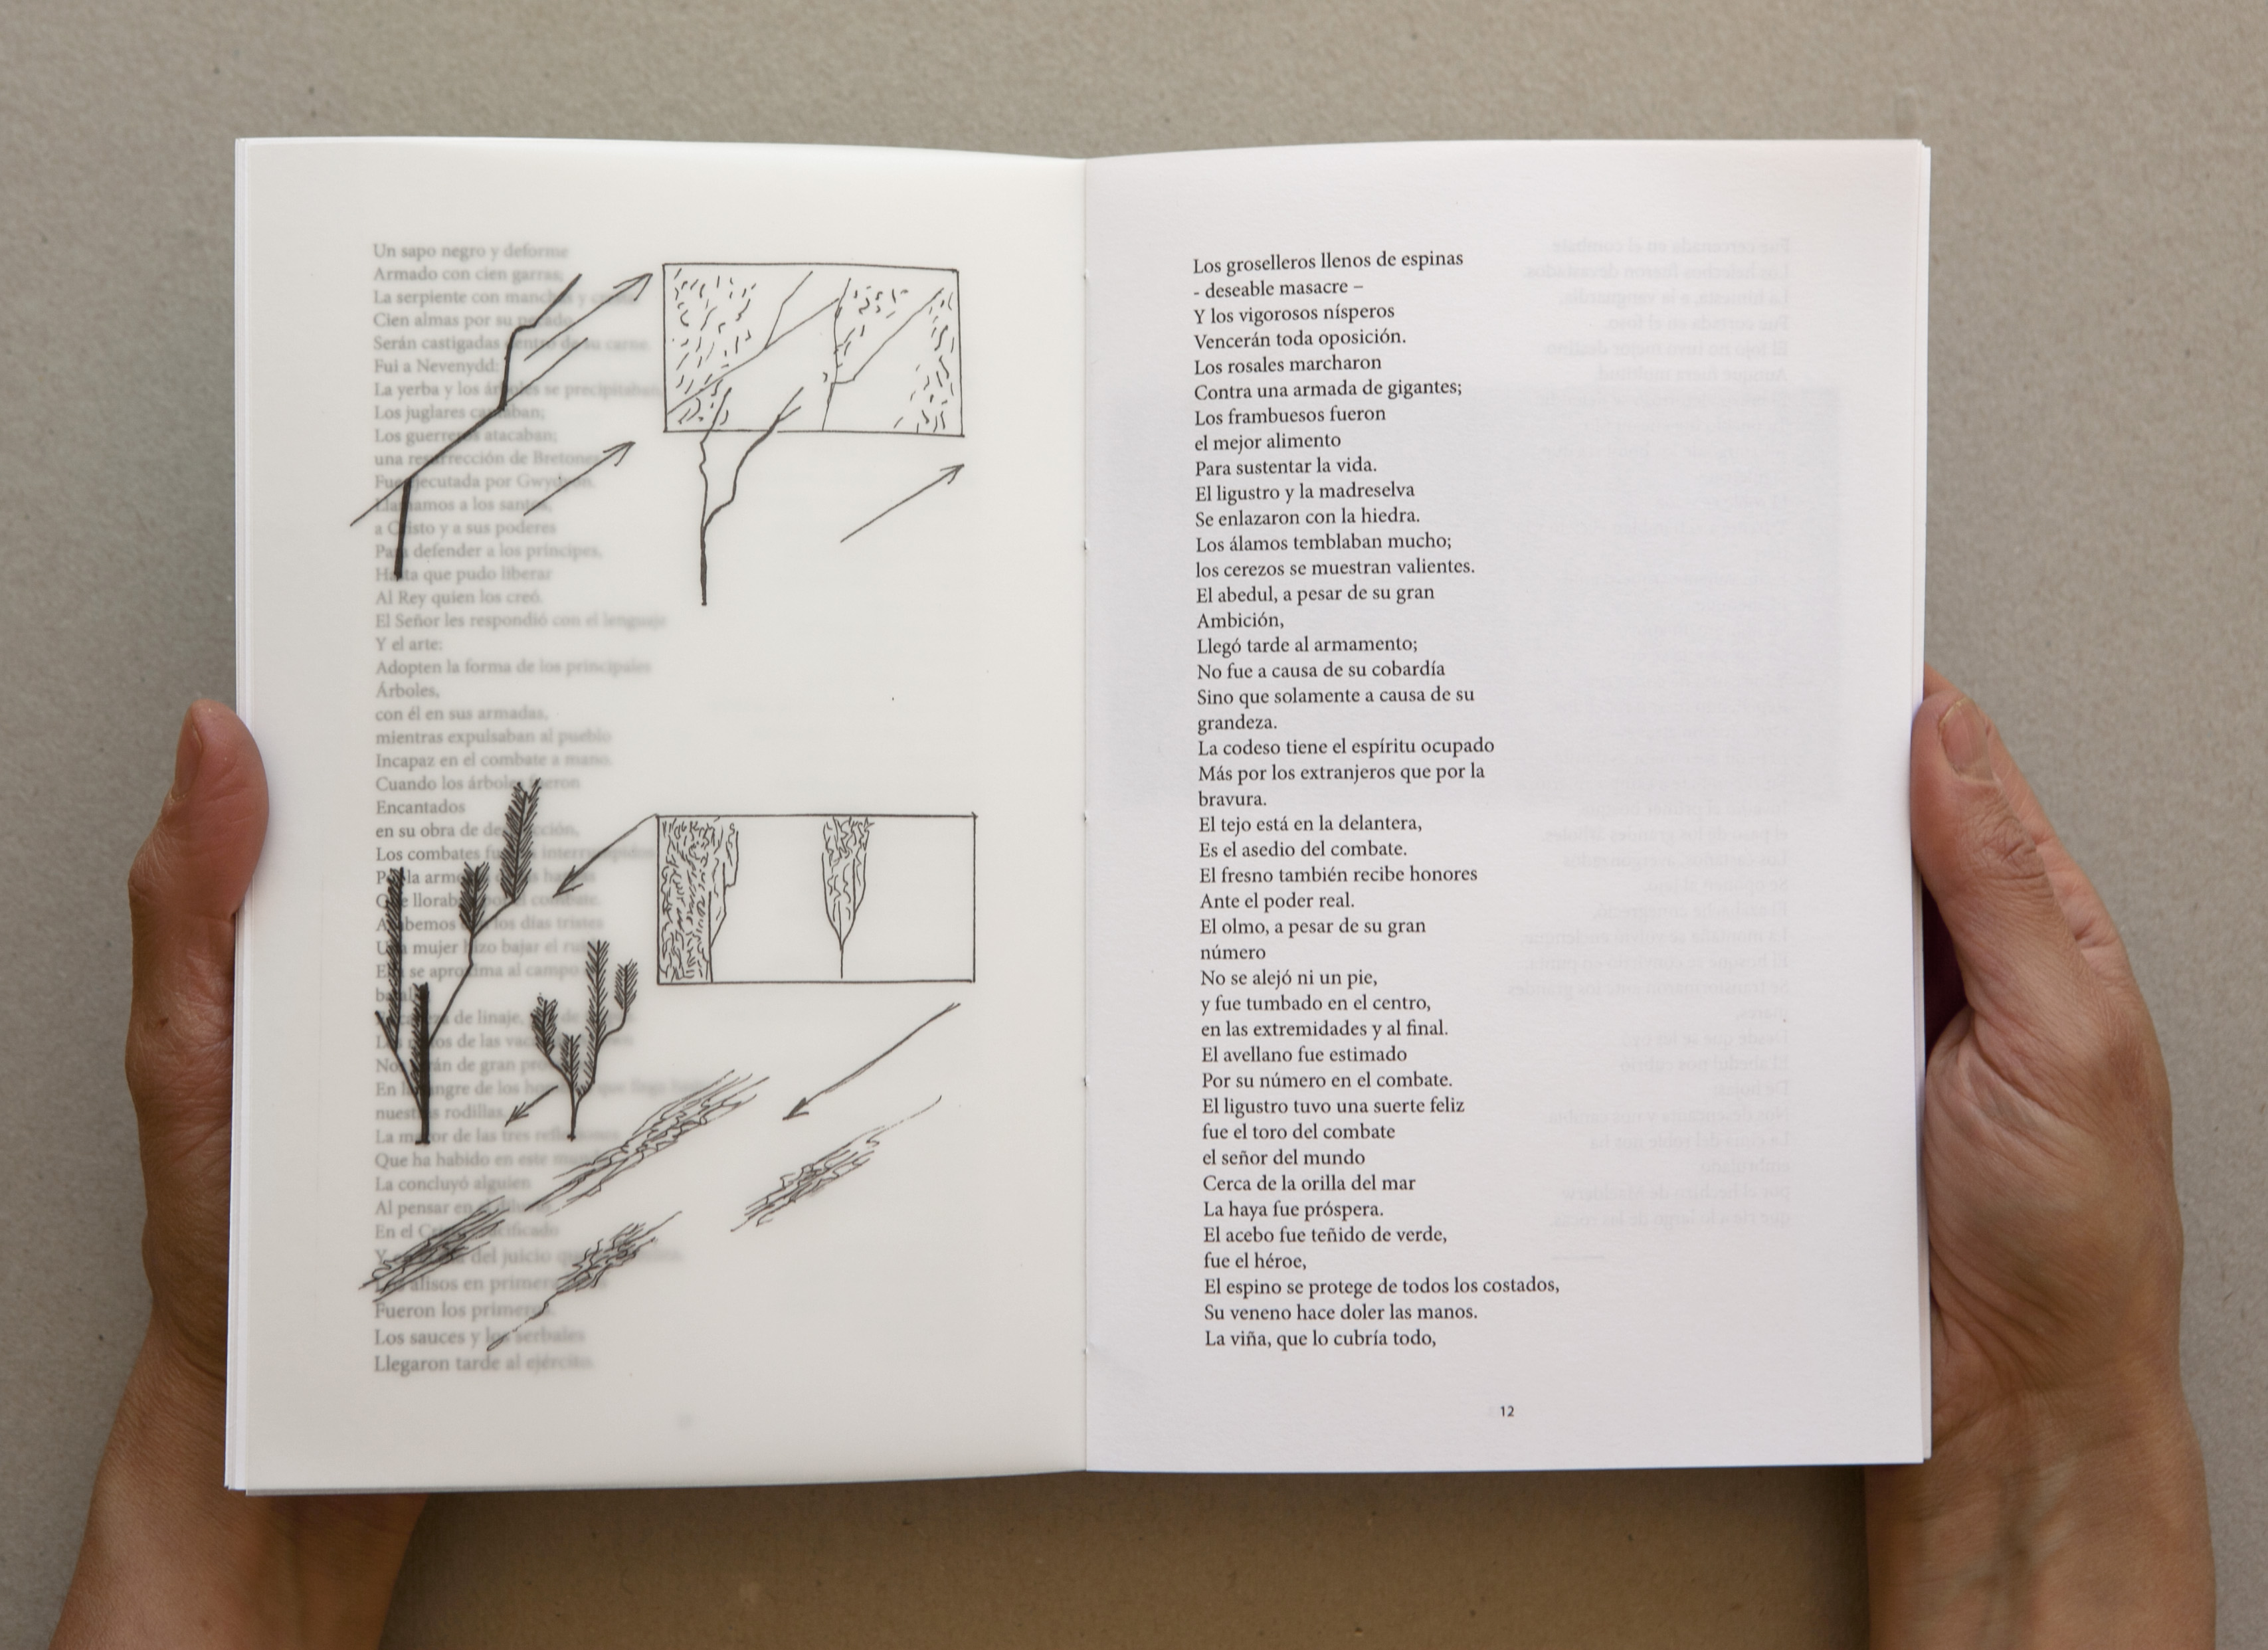 Un sapo negro y deforme
Armado con cien garras;
La serpiente con manchas y
Cien almas por su pecado
Serán castigadas dentro de su carne.
Fui a Nevenydd:
La yerba y los árboles se precipitaban
Los juglares cantaban;
Los guerreros atacaban;
una resurrección de Bretones
Fue ejecutada por Gwydyon.
Llamamos a los santos,
a Cristo y a sus poderes
Para defender a los príncipes,
Hasta que pudo liberar
Al Rey quien los creó.
El Señor les respondió con el lenguaje
Y el arte:
Adopten la forma de los principales
Árboles,
con él en sus armadas,
mientras expulsaban al pueblo
Incapaz en el combate a mano.
Cuando los árboles fueron
Encantados
en su obra de destrucción,
Los combates fueron interrumpidos
Por la armonía de las harpas
Que lloraban por el combate.
Acabemos con los días tristes
Una mujer hizo bajar el
Ella se aproxima al campo
batalla
de linaje,
de las vacas
Nos de gran
En la sangre de los hombres que llega hasta
nuestras rodillas.
La mayor de las tres reflexiones
Que ha habido en este mundo
La concluyó alguien
Al pensar en el diluvio
En el Cristo crucificado
Y del juicio
Los alisos en primera
Fueron los primeros.
Los sauces y los serbales
Llegaron tarde al ejército.
Los groselleros llenos de espinas
- deseable masacre –
Y los vigorosos nísperos
Vencerán toda oposición.
Los rosales marcharon
Contra una armada de gigantes;
Los frambuesos fueron
el mejor alimento
Para sustentar la vida.
El ligustro y la madreselva
Se enlazaron con la hiedra.
Los álamos temblaban mucho;
los cerezos se muestran valientes.
El abedul, a pesar de su gran
Ambición,
Llegó tarde al armamento;
No fue a causa de su cobardía
Sino que solamente a causa de su
grandeza.
La codeso tiene el espíritu ocupado
Más por los extranjeros que por la
bravura.
El tejo está en la delantera,
Es el asedio del combate.
El fresno también recibe honores
Ante el poder real.
El olmo, a pesar de su gran
número
No se alejó ni un pie,
y fue tumbado en el centro,
en las extremidades y al final.
El avellano fue estimado
Por su número en el combate.
El ligustro tuvo una suerte feliz
fue el toro del combate
el señor del mundo
Cerca de la orilla del mar
La haya fue próspera.
El acebo fue teñido de verde,
fue el héroe,
El espino se protege de todos los costados,
Su veneno hace doler las manos.
La viña, que lo cubría todo,
12